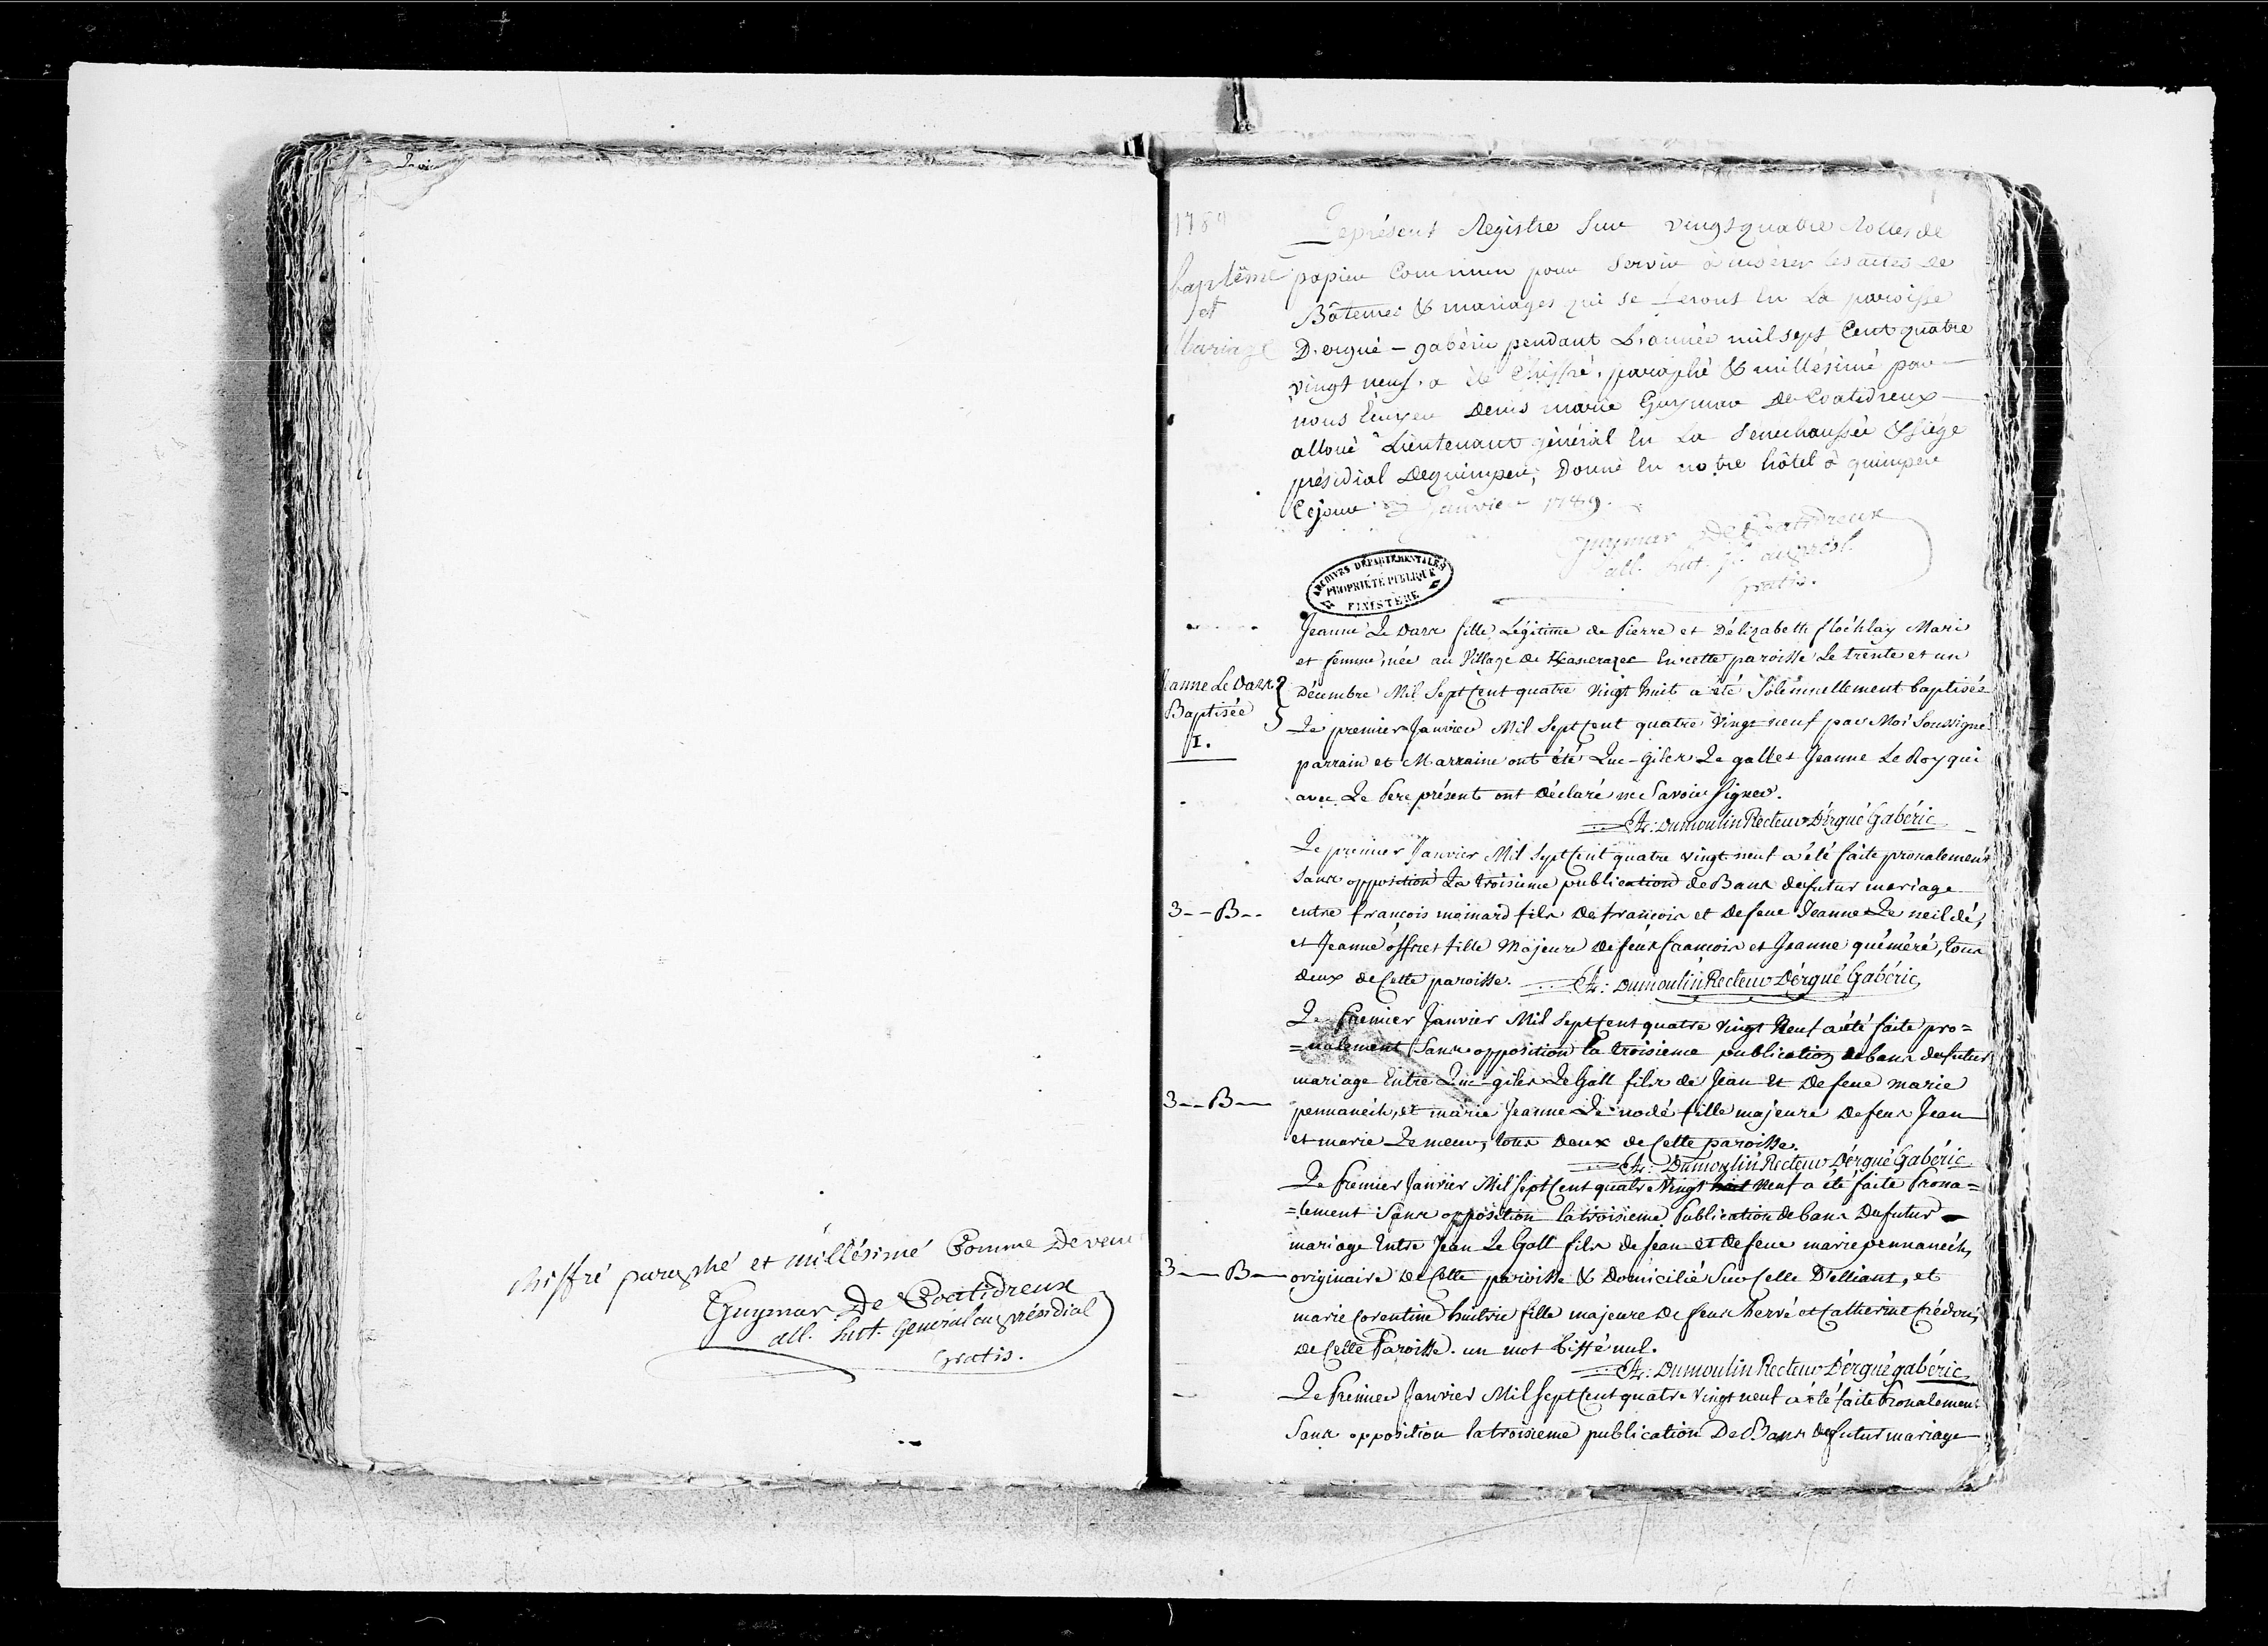 chiffré paraphé et millésimé Comme Devent
Guymar De Coatidreux
all. Lieut. Général au présidial
Gratis.
1789
baptême
et
Mariage
Le présent Registre sur vingt quatre Rolles de
papier Commun pour Servir à insérer les actes de
Bâtemes & mariages qui se feront en La paroisse
D'ergué-gabéric pendant L'année mil sept Cent quatre
vingt neuf. a été Chiffré, paraphé & millésimé par
nous Ecuyer Denis marie Guymar De Coatidreux
alloué Lieutenant général en La Senechaussée & siége
présidial De quimper; Donné en notre hôtel à quimper
Ce jour Janvier 1789.
Guymar De Coatidreux
all. Lieut. g. au présl.
Gratis.
ARCHIVES DÉPARTEMENTALES
PROPRIÉTÉ PUBLIQUE
FINISTÈRE
Jeanne Le Darx
Baptisée
I.
Jeanne Le Darx fille Légitime de Pierre et D'élizabeth flochlay Mari
et femme, née au Village de En cette paroisse Le trente et un
Décembre Mil Sept Cent quatre Vingt huit a été Solemnellement baptisée
Le premier Janvier Mil Sept Cent quatre Vingt neuf par Moi Soussigné
parrain et Marraine ont été Luc-Giles Le gall et Jeanne Le Roy qui
avec Le Pere présents ont Déclaré ne Savoir Signer.
Dumoulin Recteur D'érgué Gabéric
Le premier Janvier Mil Sept Cent quatre vingt neuf a été faite pronalement
Sans opposition La troisieme publication de Bans de futur mariage
3--B--
entre françois moinard fils De françois et De feue Jeanne Le neildé,
et Jeanne offret fille Majeure De feus françois et Jeanne quéméré, tous
deux de Cette paroisse. Dumoulin Recteur D'érgué Gabéric
Le Premier Janvier Mil Sept Cent quatre Vingt Neuf a été faite pro=
=nalement Sans opposition la troisieme publication de bans de futur
mariage Entre Luc-giles Le Gall fils de Jean Et De feue marie
3--B--
pennanéch, et marie Jeanne Le nodé fille majeure De feus Jean
et marie Le meur, tous Deux de Cette paroisse.
Dumoulin Recteur D'érgué Gabéric
Le Premier Janvier Mil Sept Cent quatre Vingt huit Neuf a été faite Prona=
=lement Sans opposition la troisieme Publication de bans Du futur
mariage Entre Jean Le Gall fils de Jean et De feue marie pennanéch,
3--B--
originaire De Cette paroisse & Domicilié Sur Celle D'Elliant, et
marie Corentine huitric fille majeure De feus hervé et Catherine
de Cette Paroisse. un mot biffé nul.
Dumoulin Recteur D'érgué gabéric
Le Premier Janvier Mil Sept Cent quatre Vingt neuf a été faite Pronalement
Sans opposition la troisieme publication De Bans de futur mariage